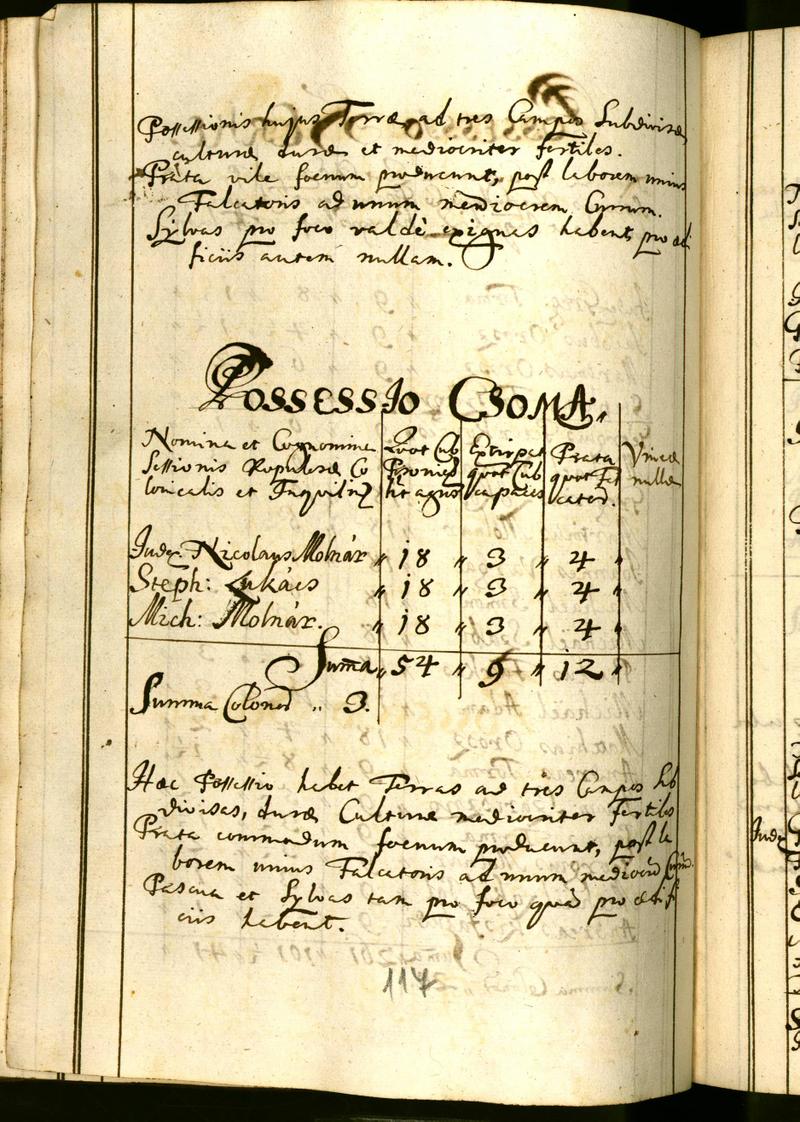 Possessionis hujus Terræ ad tres Campos Subdivisæ
culturæ duræ et mediocriter fertiles.
Prata vile foenum producunt, post laborem unius
Falcatoris ad unum mediocrem Currum.
Sylvas pro foco valdè exiguas habent, pro ædi
ficiis autem nullam.
Possessio Csoma.
Nomina et Cognomina Quot Cub Extirpat Prata Vineæ
Sessionis Populosæ Co quot Cub quot Fal nullæ
lonicalis et Inquilin capaces cator.
Judex Nicolaus Molnár „ 18 „ 3 „ 4 „
Steph: Lukács „ 18 „ 3 „ 4 „
Mich: Molnár. „ 18 „ 3 „ 4 „
Suma „ 54 „ 9 „ 12 „
Summa Colonor „ 3.
Hæc Possessio habet Terras ad tres Campos sub
divisas, duræ Culturæ mediocriter fertiles
Prata commodum foenum producunt, post la
borem unius Falcatoris ad unum mediocrem
Pascua et Sylvas tam pro foco quam pro ædifi
ciis habent.
117
Jude